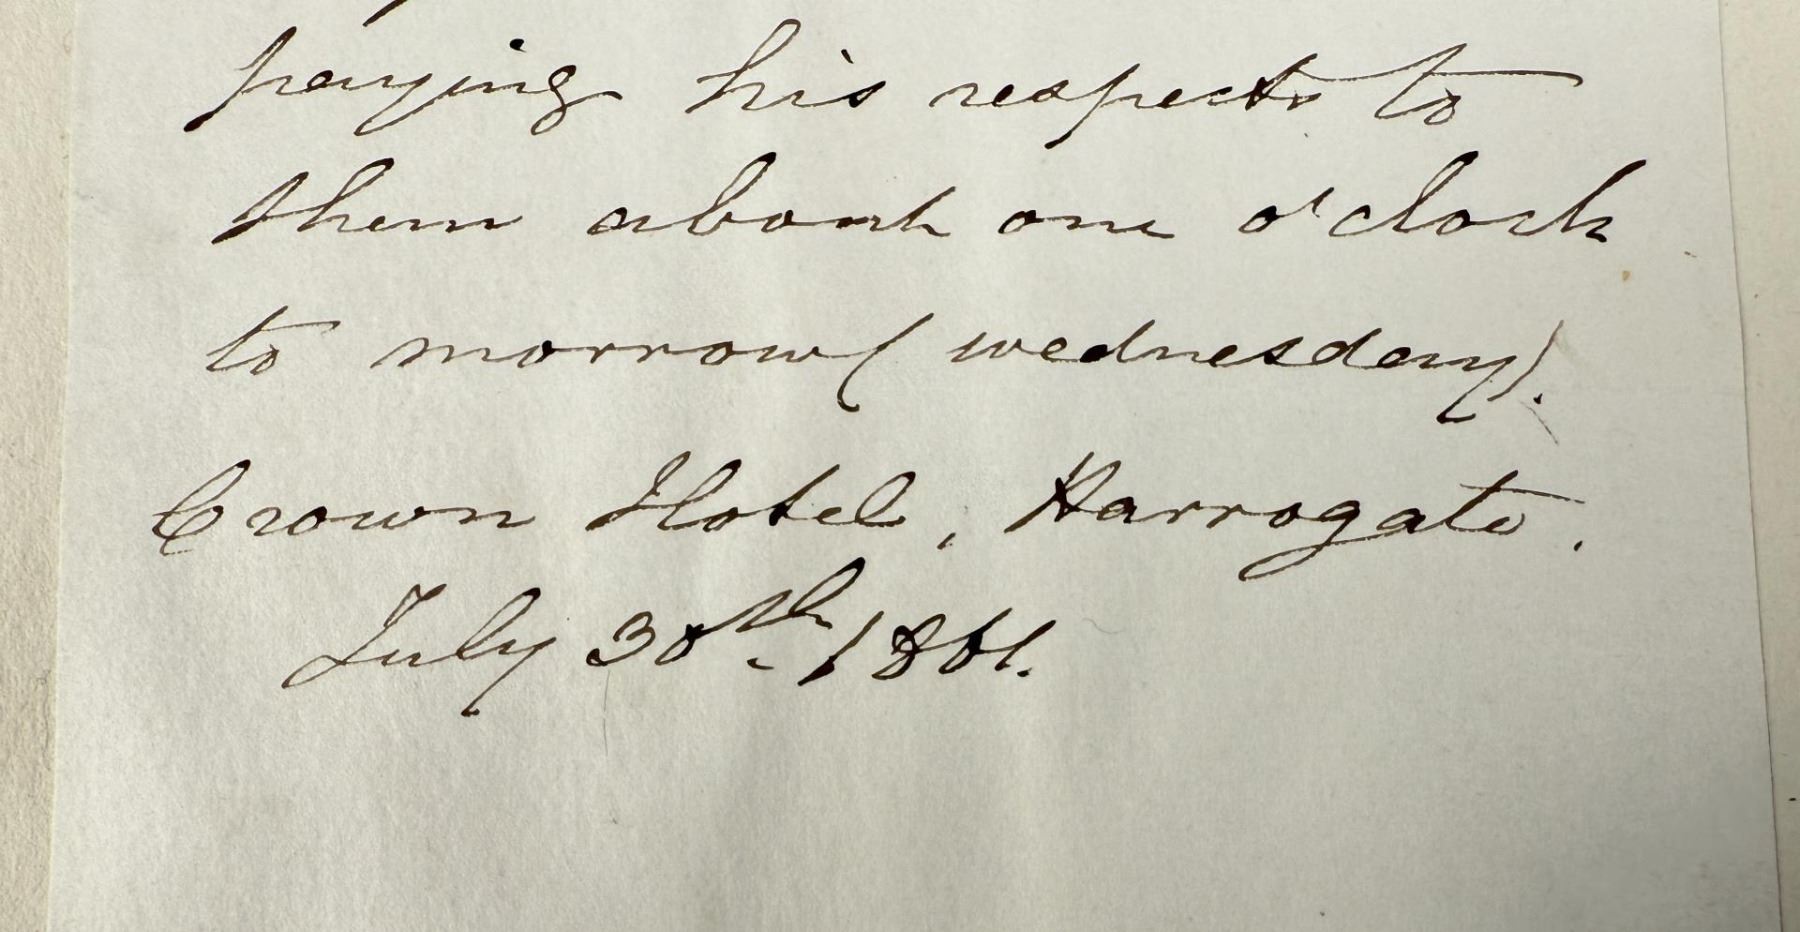 paying his respects to
them about one o'clock
to morrow (wednesday).
Crown Hotel, Harrogate.
July 30th. 1861.